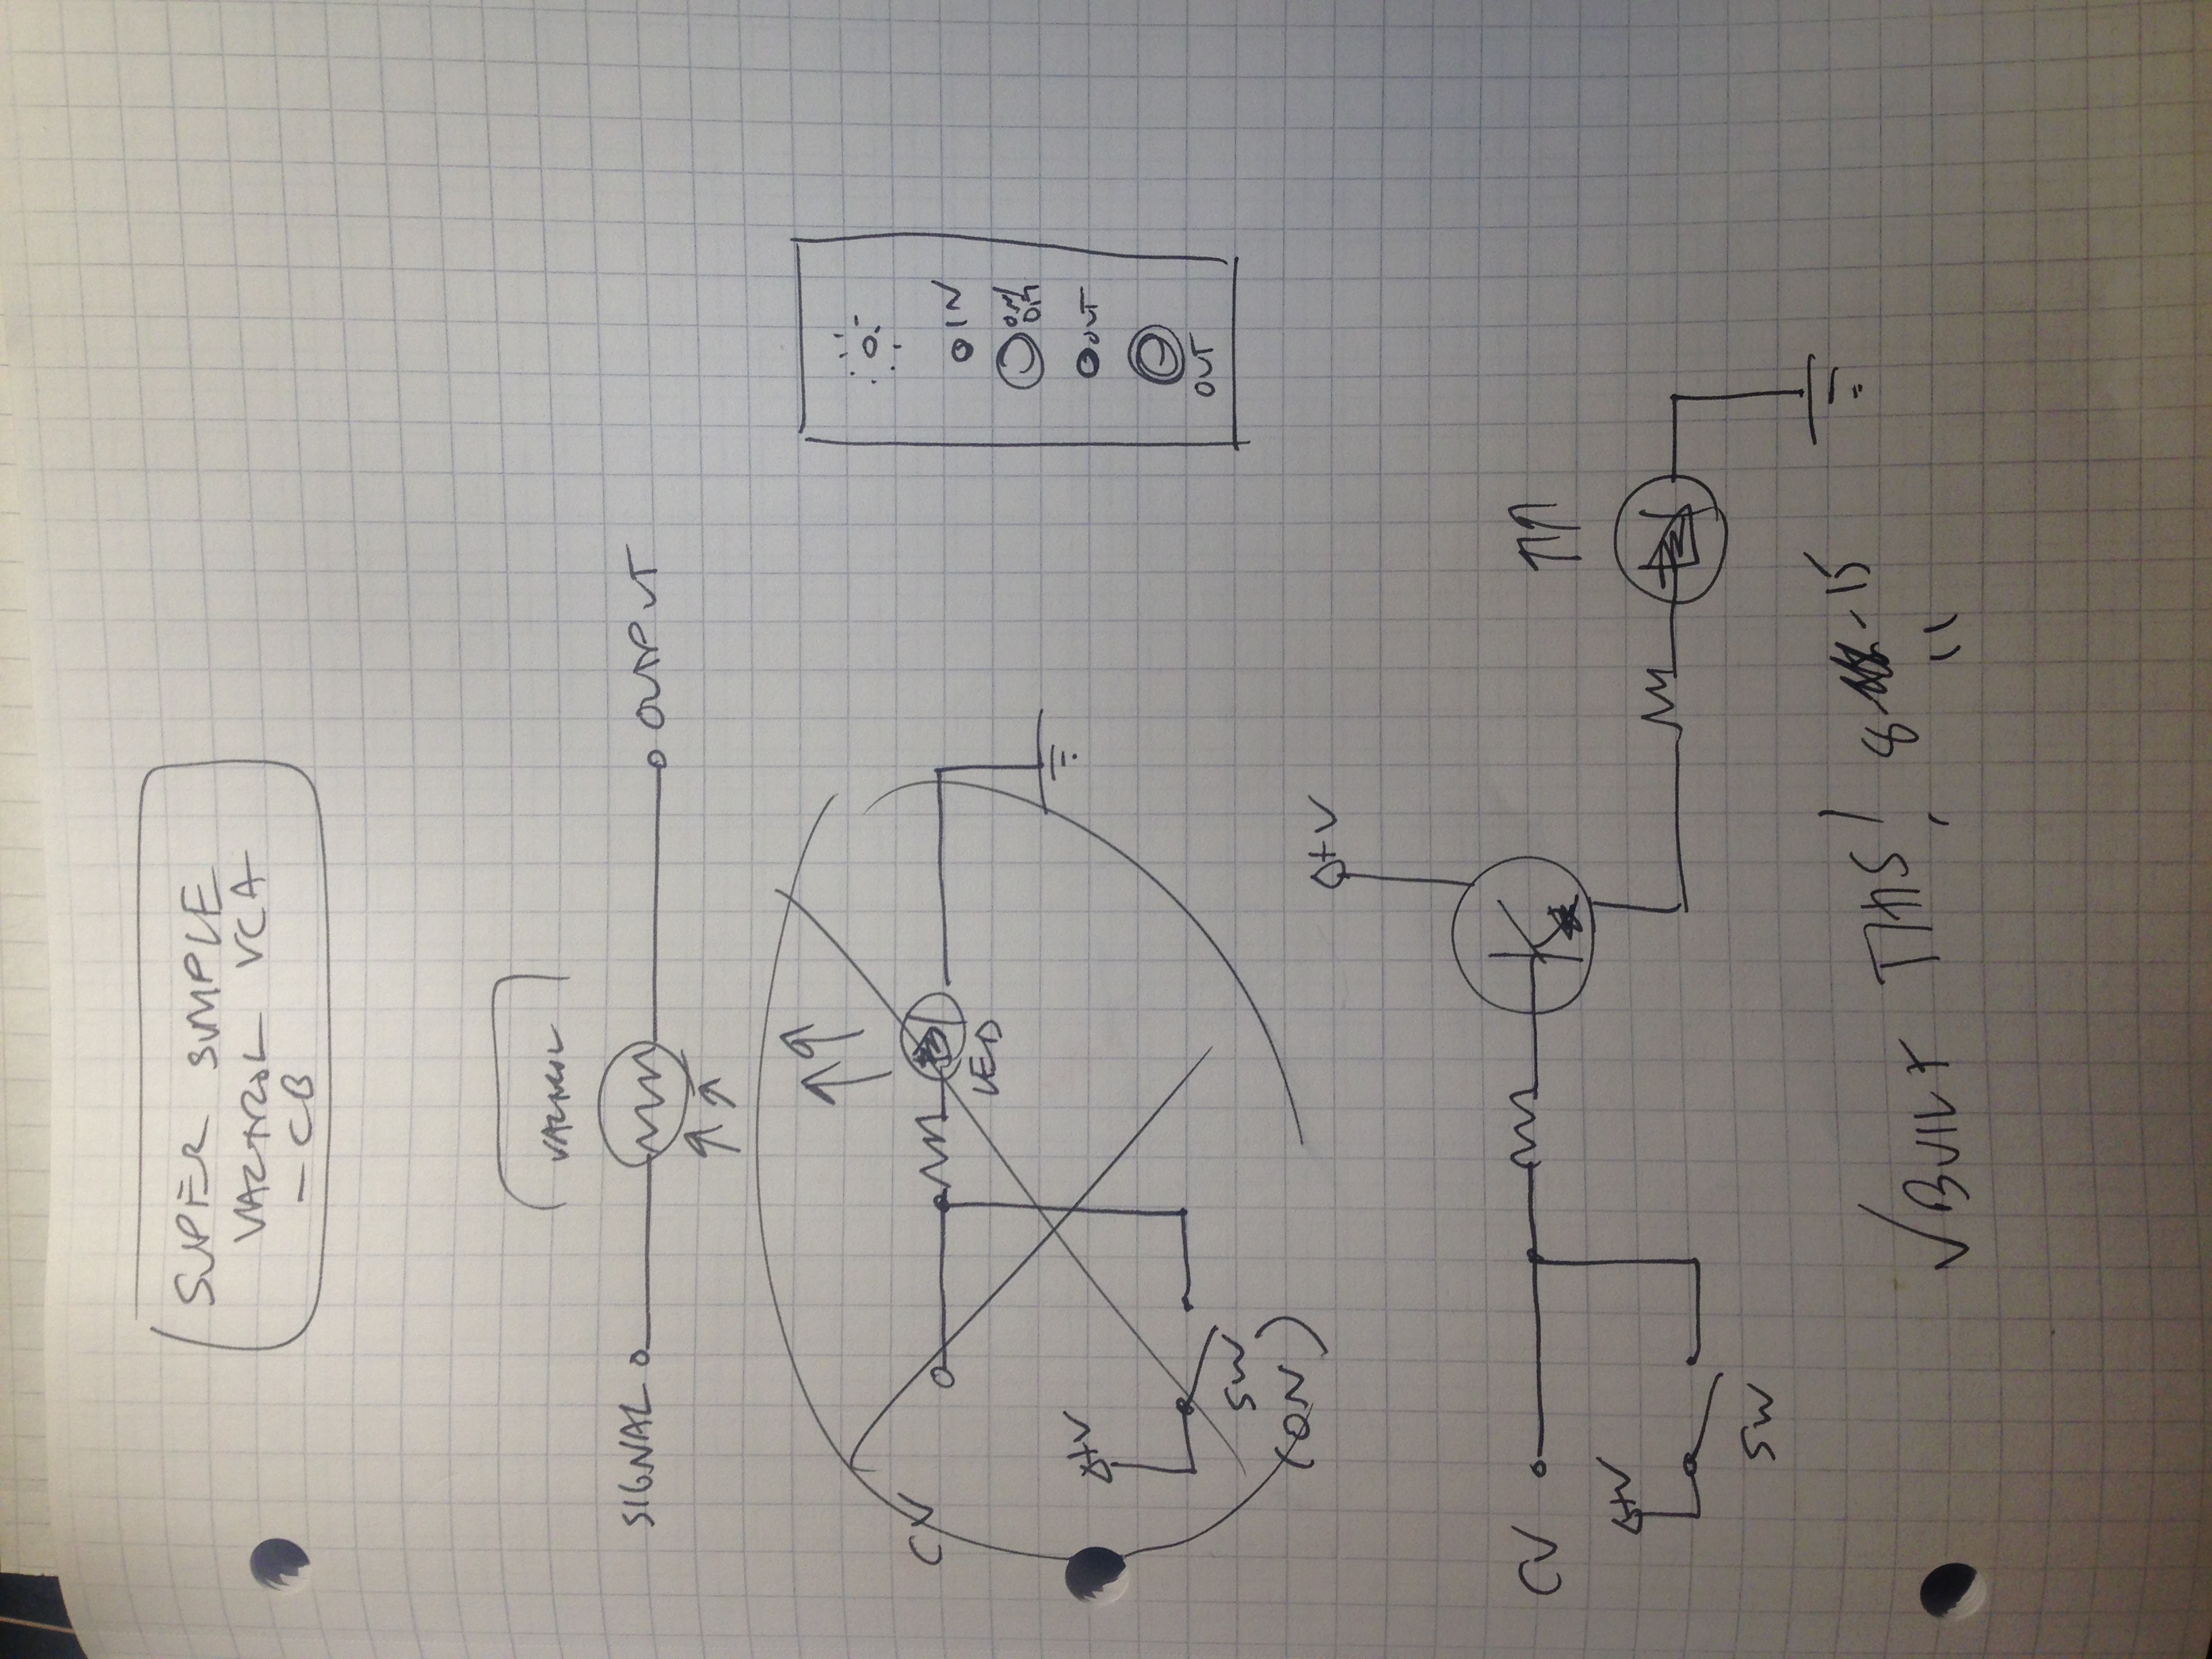 SUPER SIMPLE
VACTROL VCA
- CB
VACTROL
SIGNAL
OUTPUT
CV
LED
+V
SW
(ON)
IN
ON/
OFF
OUT
OUT
+V
CV
+V
SW
√ BUILT THIS! 8 -15